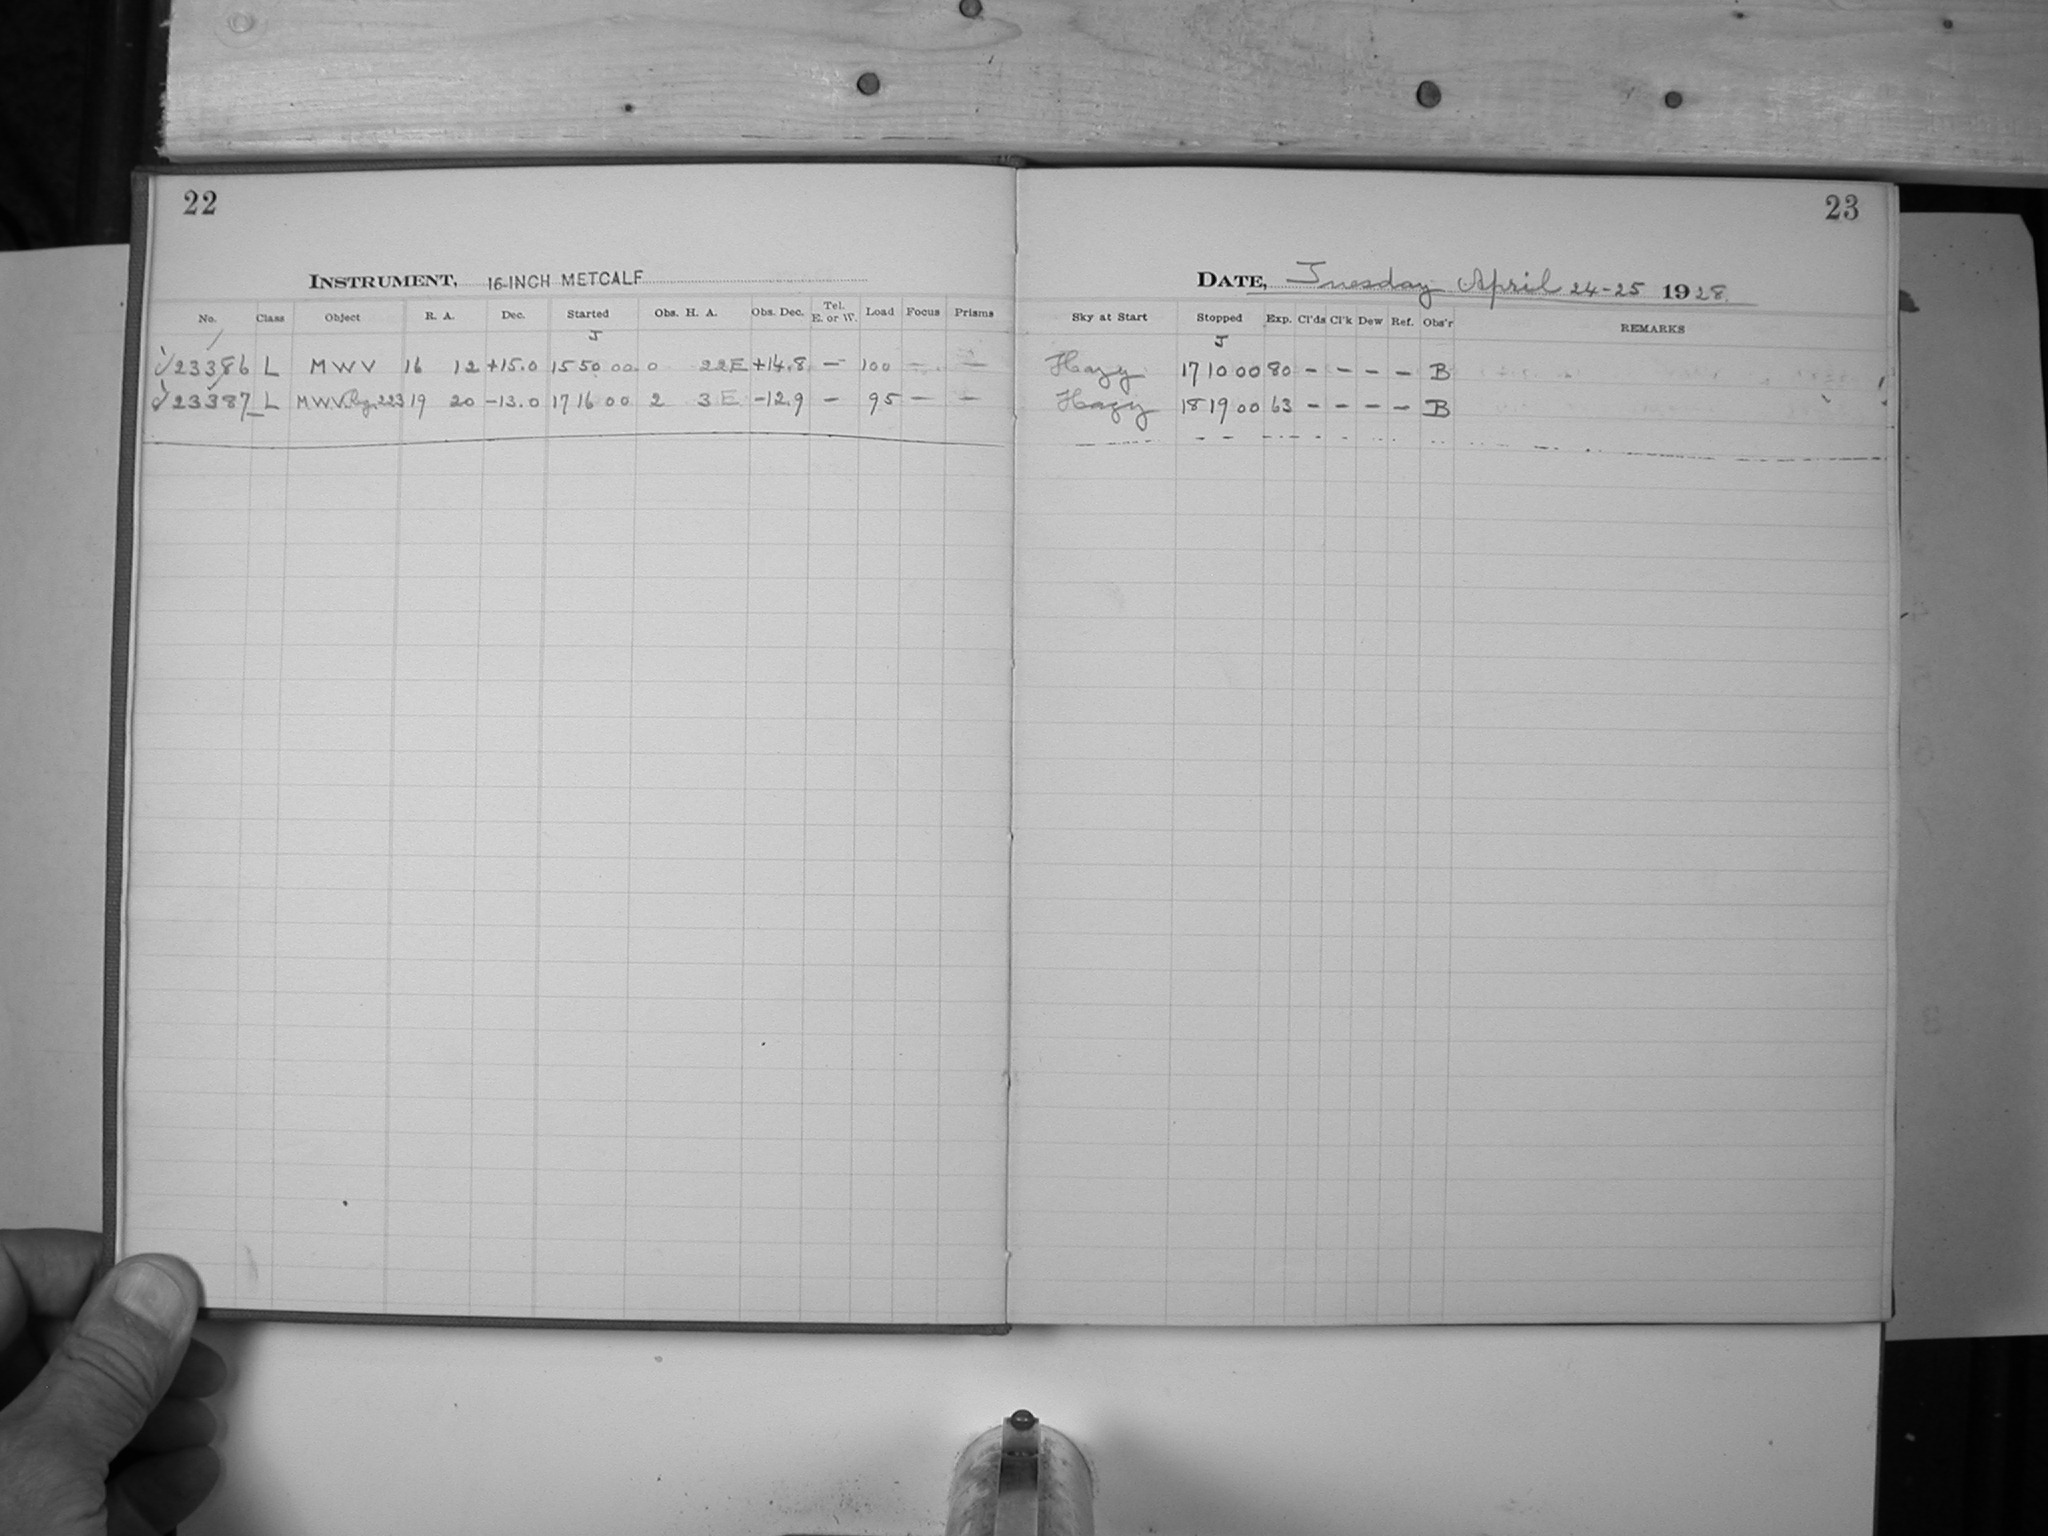 22
INSTRUMENT, 16-INCH METCALF
No. Class Object R. A. Dec. Started Obs. H. A. Obs. Dec. Tel. E. or W. Load Focus Prisms
J
23386 L MWV 16 12 +15.0 15 50 00 0 22E +14.8 — 100 — —
23387 L M.W.V. Reg. 223 19 20 -13.0 17 16 00 2 3 E -12.9 — 95 — —
23
DATE, Tuesday April 24-25 1928.
Sky at Start Stopped Exp. Cl'ds Cl'k Dew Ref. Obs'r REMARKS
J
Hazy 17 10 00 80 - - - - B
Hazy 18 19 00 63 - - - - B